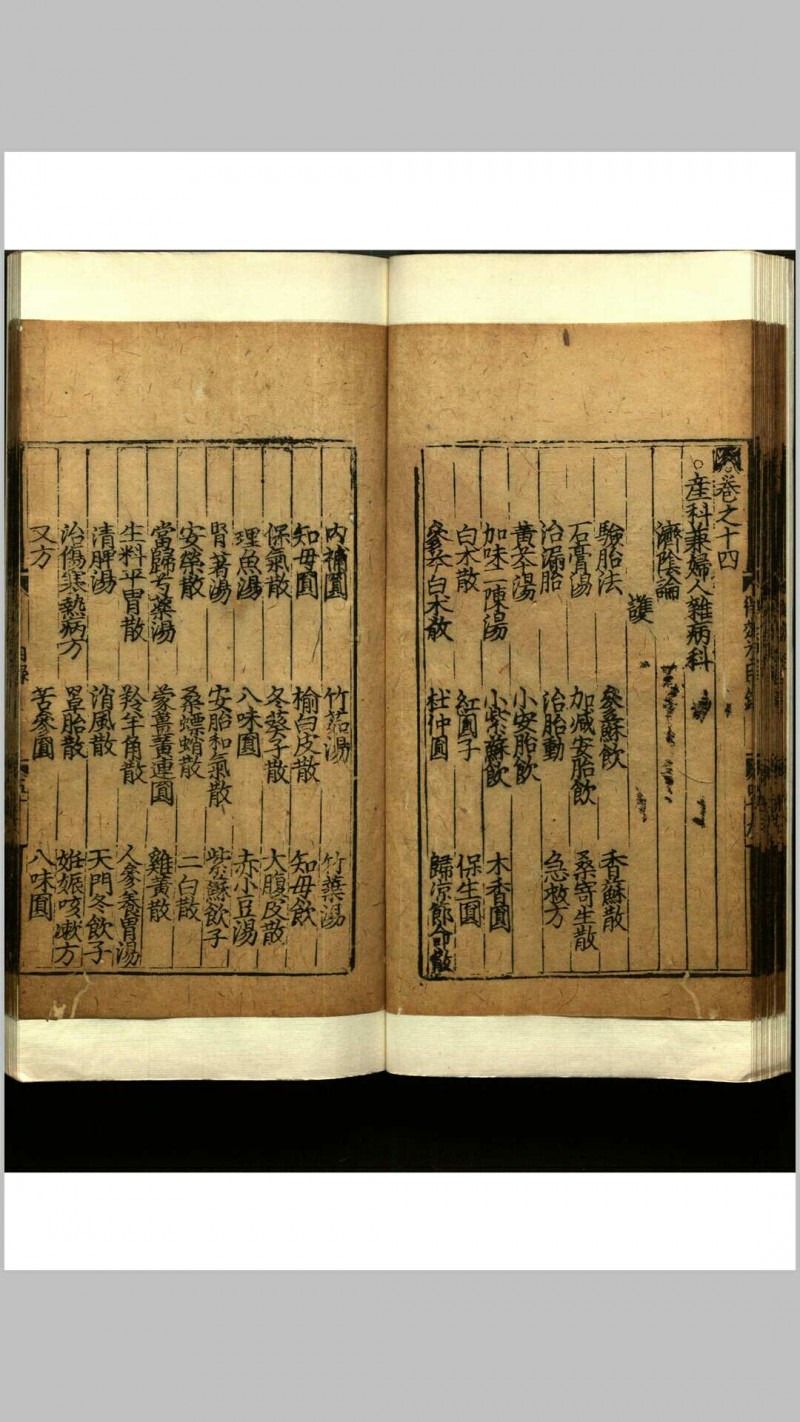 卷之十四
○産科兼婦人雜病科
濟陰論
護
驗胎法 參蘇飲 香蘇散
石膏湯 加減安胎飲 桑寄生散
治漏胎 治胎動 急救方
黃芩湯 小安胎飲
加味二陳湯 小紫蘇飲 木香圓
白朮散 紅圓子 保生圓
參苓白朮散 杜仲圓 歸涼節命散
内補圓 竹茹湯 竹葉湯
知母圓 榆白皮散 知母飲
保氣散 冬葵子散 大腹皮散
鯉魚湯 八味圓 赤小豆湯
腎著湯 安胎和氣散 紫蘇飲子
安榮散 桑螵蛸散 二白散
當歸芍藥湯 蒙薑黃連圓 雞黃散
生料平胃散 羚羊角散 人參養胃湯
清脾湯 消風散 天門冬飲子
治傷寒熱病方 罩胎散 妊娠咳嗽方
又方 苦參圓 八味圓